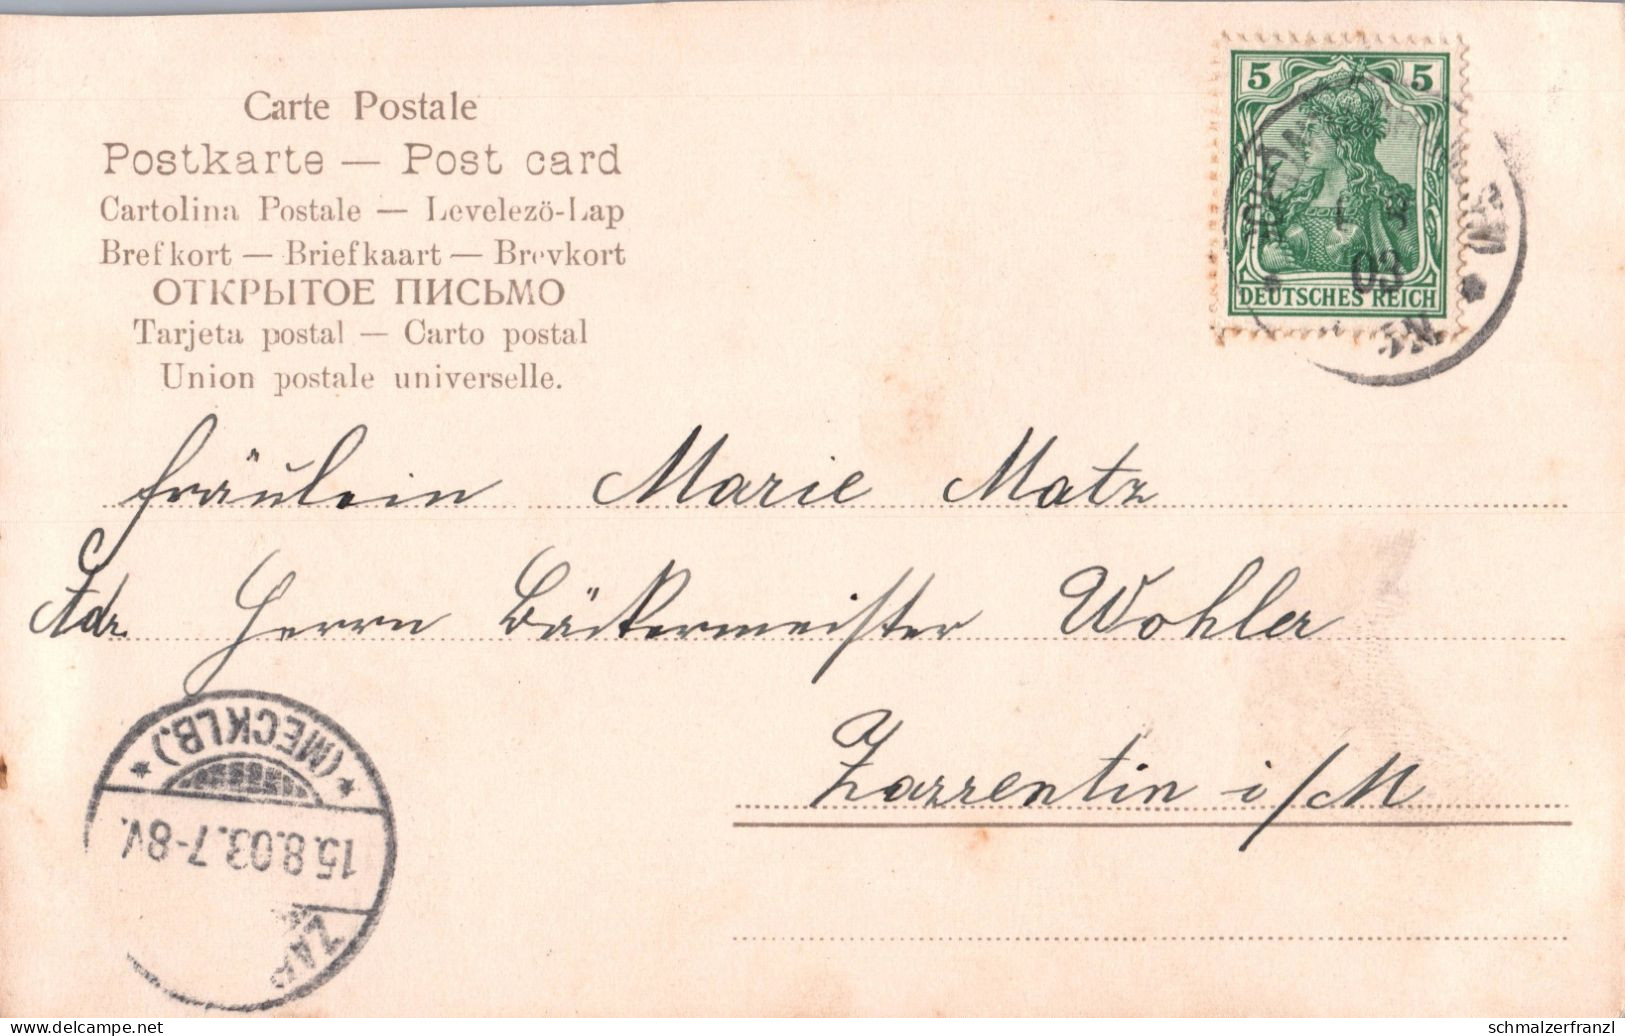 Carte Postale
Postkarte — Post card
Cartolina Postale — Levelezö-Lap
Brefkort — Briefkaart — Brevkort
ОТКРЫТОЕ ПИСЬМО
Tarjeta postal — Carto postal
Union postale universelle.
5 5
03
DEUTSCHES REICH
Fräulein Marie Matz
Adr. Herrn Bäckermeister Wohler
Zarrentin i/M
(MECKLB.)
15.8.03.7-8V.
ZAR
www.delcampe.net
schmalzerfranzl